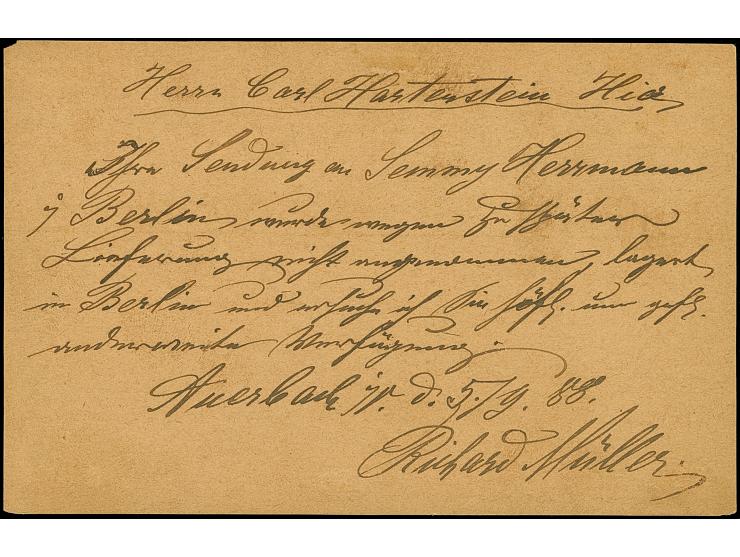 Herrn Carl Hartenstein Hier
Ihre Sendung an Semmy Herrmann
i/ Berlin wurde wegen zu später
Lieferung nicht angenommen, lagert
in Berlin und ersuche ich Sie höfl. um gefl.
anderweite Verfügung.
Auerbach i/V. d. 5./9. 88.
Richard Müller.